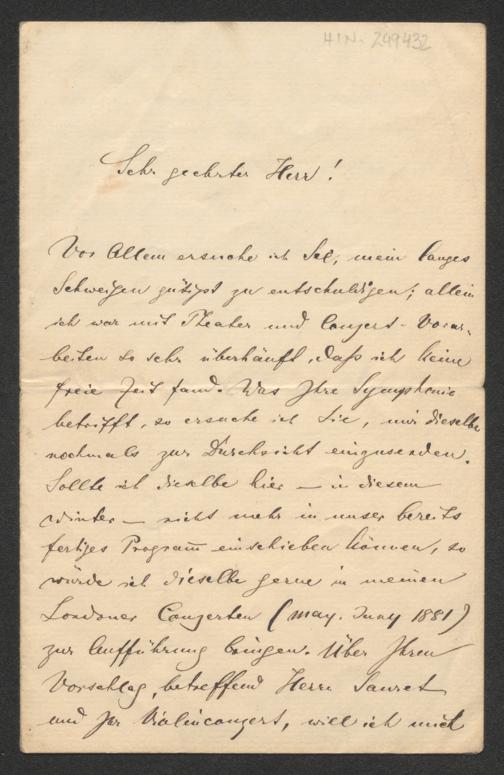 HIN. 249432
Sehr geehrter Herr!
Vor Allem ersuche ich Sie, mein langes
Schweigen gütigst zu entschuldigen; allein
ich war mit Theater und Conzert-Vorar-
beiten so sehr überhäuft, daß ich keine
freie Zeit fand. Was Ihre Symphonie
betrifft, so ersuche ich Sie, mir dieselbe
nochmals zur Durchsicht einzusenden.
Sollte ich dieselbe hier — in diesem
Winter — nicht mehr in unser bereits
fertiges Programm einschieben können, so
würde ich dieselbe gerne in meinen
Londoner Conzerten (may. Juny 1881)
zur Aufführung bringen. Über Ihren
Vorschlag, betreffend Herrn Sauret
und Ihr Violinconzert, will ich mich